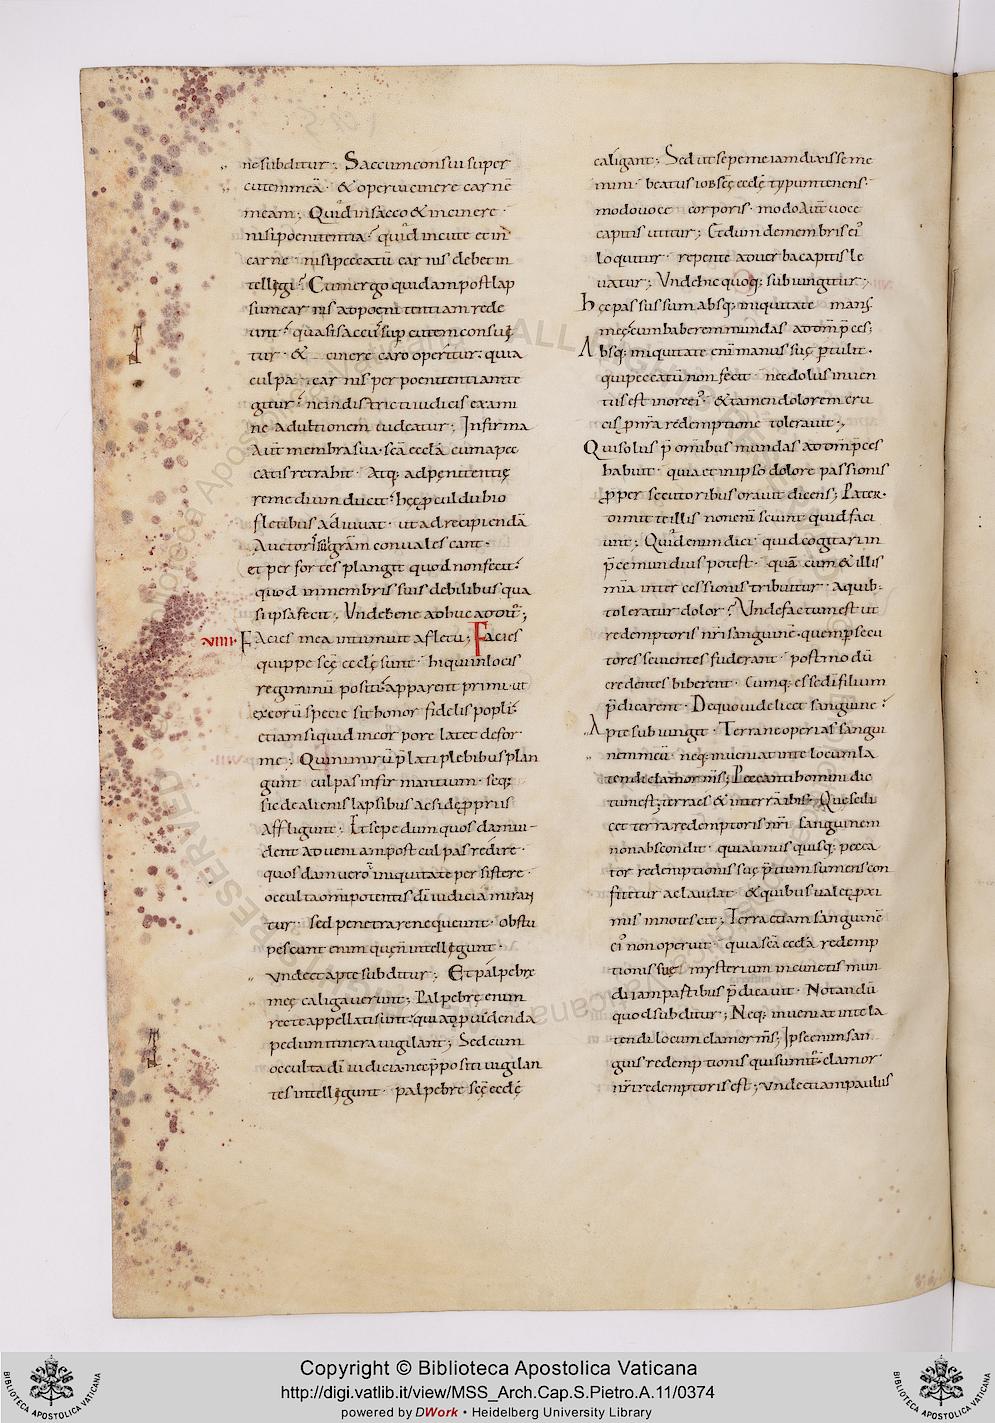 ne subditur; Saccum consui super
cutem meā· & operui cinere carnē
meam; Quid in sacco & in cinere·
nisi poenitentia? quid in cute et in
carne· nisi peccatū carnis debet in
tellegi? Cum ergo quidam post lap
sum carnis ad poenitentiam rede
unt· quasi saccus sup cutem consuę
tur· & cinere caro operitur: quia
culpa carnis per poenitentiam te
gitur· ne in districti iudicis exami
ne ad ultionem uideatur; Infirma
Aut̄ membra sua scā ecclā cum a pec
catis retrahit· Atq; ad pęnitentię
remedium ducit· hęc p̄cul dubio
fletibus adiuuat· ut ad recipiendā
Auctoris grām conualescant·
et per fortes plangit quod non fecit·
quod in membris suis debilibus qua
si ipsa fecit; Unde bene adhuc addit̄;
VIIII· FAcies mea intumuit a fletu; Facies
quippe scę ecclę sunt· hi qui in locis
regiminū positi apparent primi· ut
ex eorū specie sit honor fidelis popli·
etiam si quid in corpore latet defor
me; Qui nimirū p̄lati plebibus plan
gunt culpas infirmantium· seq;
sic de alienis lapsibus ac si de p̄priis
affligunt; Et sepe dum quosdam ui
dent ad ueniam post culpas redire·
quosdam uero iniquitate persistere·
occulta omipotentis dī iudicia miran
tur· sed penetrare nequeunt· obstu
pescunt enim quę n̄ intellegunt·
unde et apte subditur; Et palpebre
meę caligauerunt; Palpebre enim
recte appellati sunt· qui ad p̄uidenda
pedum itinera uigilant; Sed cum
occulta dī iudicia nec p̄positi uigilan
tes intellegunt· palpebre scę ecclę
caligant; Sed ut sepe me iam dixisse me
mini· beatus iob scę ecclę typum tenens·
modo uoce corporis· modo aut̄ uoce
capitis utitur; Et dum de membris ei'
loquitur· repente ad uerba capitis le
uatur; Unde hic quoq; subiungitur;
hęc passus sum absq; iniquitate manꝰ
meę· cum haberem mundas ad dm̄ p̄ces;
Absq; iniquitate enī manus suę p̄tulit·
qui peccatū non fecit· nec dolus inuen
tus est in ore ei'· & tamen dolorem cru
cis p nr̄a redemptione tolerauit;
Qui solus p̄ omibus mundas ad dm̄ p̄ces
habuit· quia et in ipso dolore passionis
p̄ persecutoribus orauit dicens; Pater·
dimitte illis non enī sciunt quid faci
unt; Quid enim dici· quid cogitari in
p̄ce mundius potest· quā cum & illis
mīa intercessionis tribuitur· a quib;
toleratur dolor? Unde factum est ut
redemptoris nr̄i sanguinē· quem psecu
tores seuientes fuderant· postmodū
credentes biberent· Cumq; esse dī filium
p̄dicarent· De quo uidelicet sanguine·
Apte subiungit· Terra ne operias sangui
nem meū· neq; inueniat in te locum la
tendi clamor ms̄; Peccanti homini dic
tum est; terra es & in terra ibis; Que scili
cet terra redemptoris nr̄i sanguinem
non abscondit· quia unus quisq; pecca
tor redemptionis suę p̄tium sumens con
fitetur ac laudat· & quibus ualet p̄xi
mis innotescit; Terra etiam sanguinē
ei' non operuit· quia scā ecclā redemp
tionis suę mysterium in cunctis mun
di iam partibus p̄dicauit· Notandū
quod subditur; Neq; inueniat in te la
tendi locum clamor ms̄; Ipse enim san
guis redemptionis qui sumit̄· clamor
nr̄i redemptoris est; unde etiam paulus
Copyright © Biblioteca Apostolica Vaticana
http://digi.vatlib.it/view/MSS_Arch.Cap.S.Pietro.A.11/0374
powered by DWork • Heidelberg University Library
BIBLIOTECA APOSTOLICA VATICANA
BIBLIOTECA APOSTOLICA VATICANA